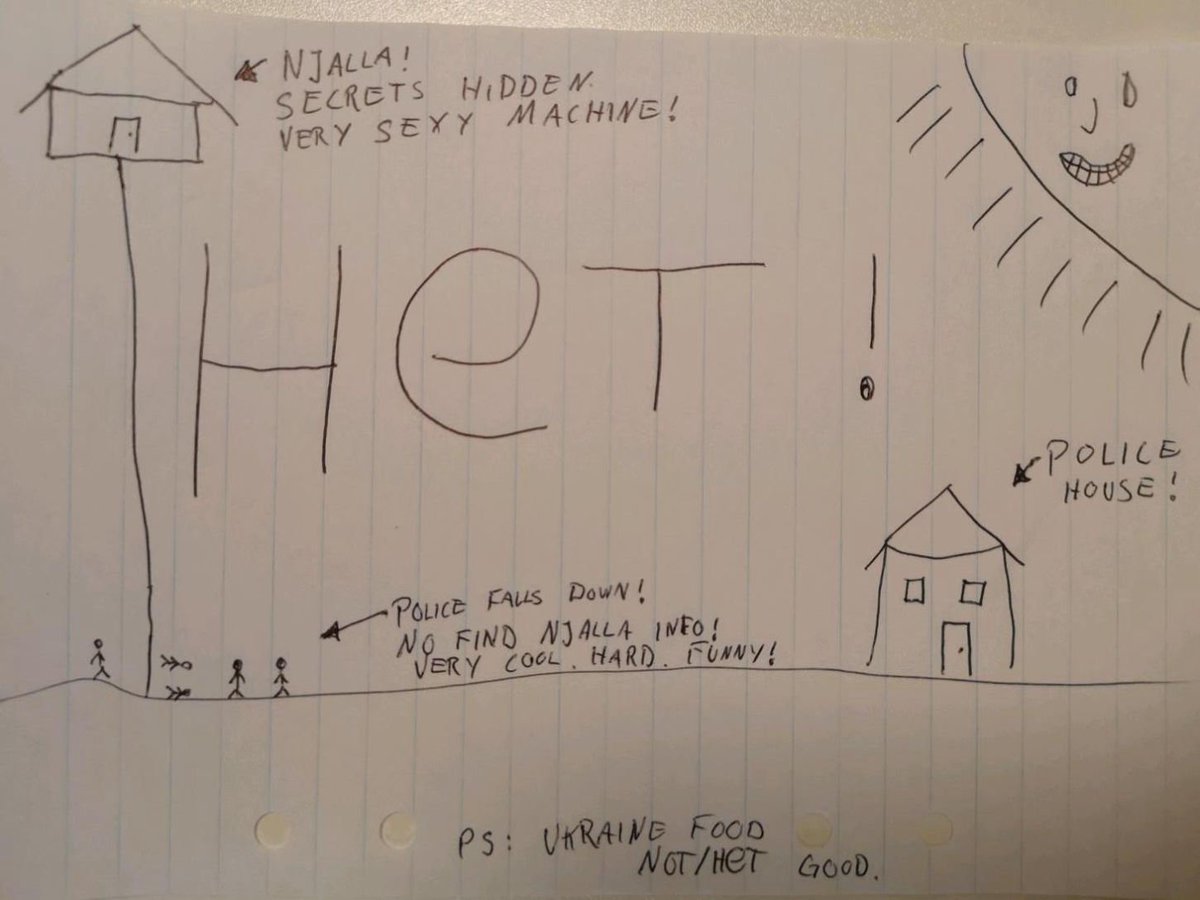 NJALLA!
SECRETS HIDDEN.
VERY SEXY MACHINE!
HeT!
POLICE
HOUSE!
POLICE FALLS DOWN!
NO FIND NJALLA INFO!
VERY COOL. HARD. FUNNY!
PS: UKRAINE FOOD
NOT/HeT GOOD.